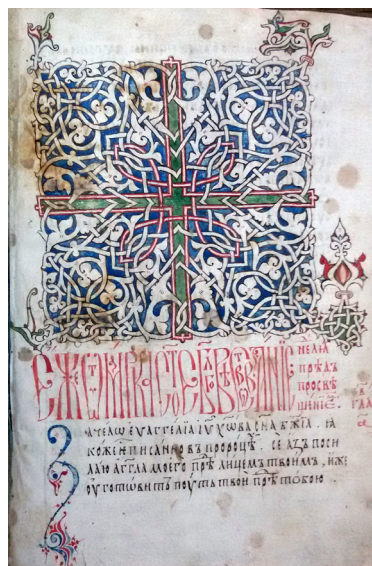 Еже ѿ Марка ст҃ое бл҃говѣствованїе
нелїа
прѣдъ
просвѣ
щенїе
гла
Зачелѡ еѵаггелїа і҃ѵ х҃ва сн҃а бж҃їа. ꙗ
коже е писанно въ пророцѣ. се азъ поси
лаю аггл҃а моего прѣ лицемъ твоимъ, иже
оуготовитъ поуть твои прѣ тобою.